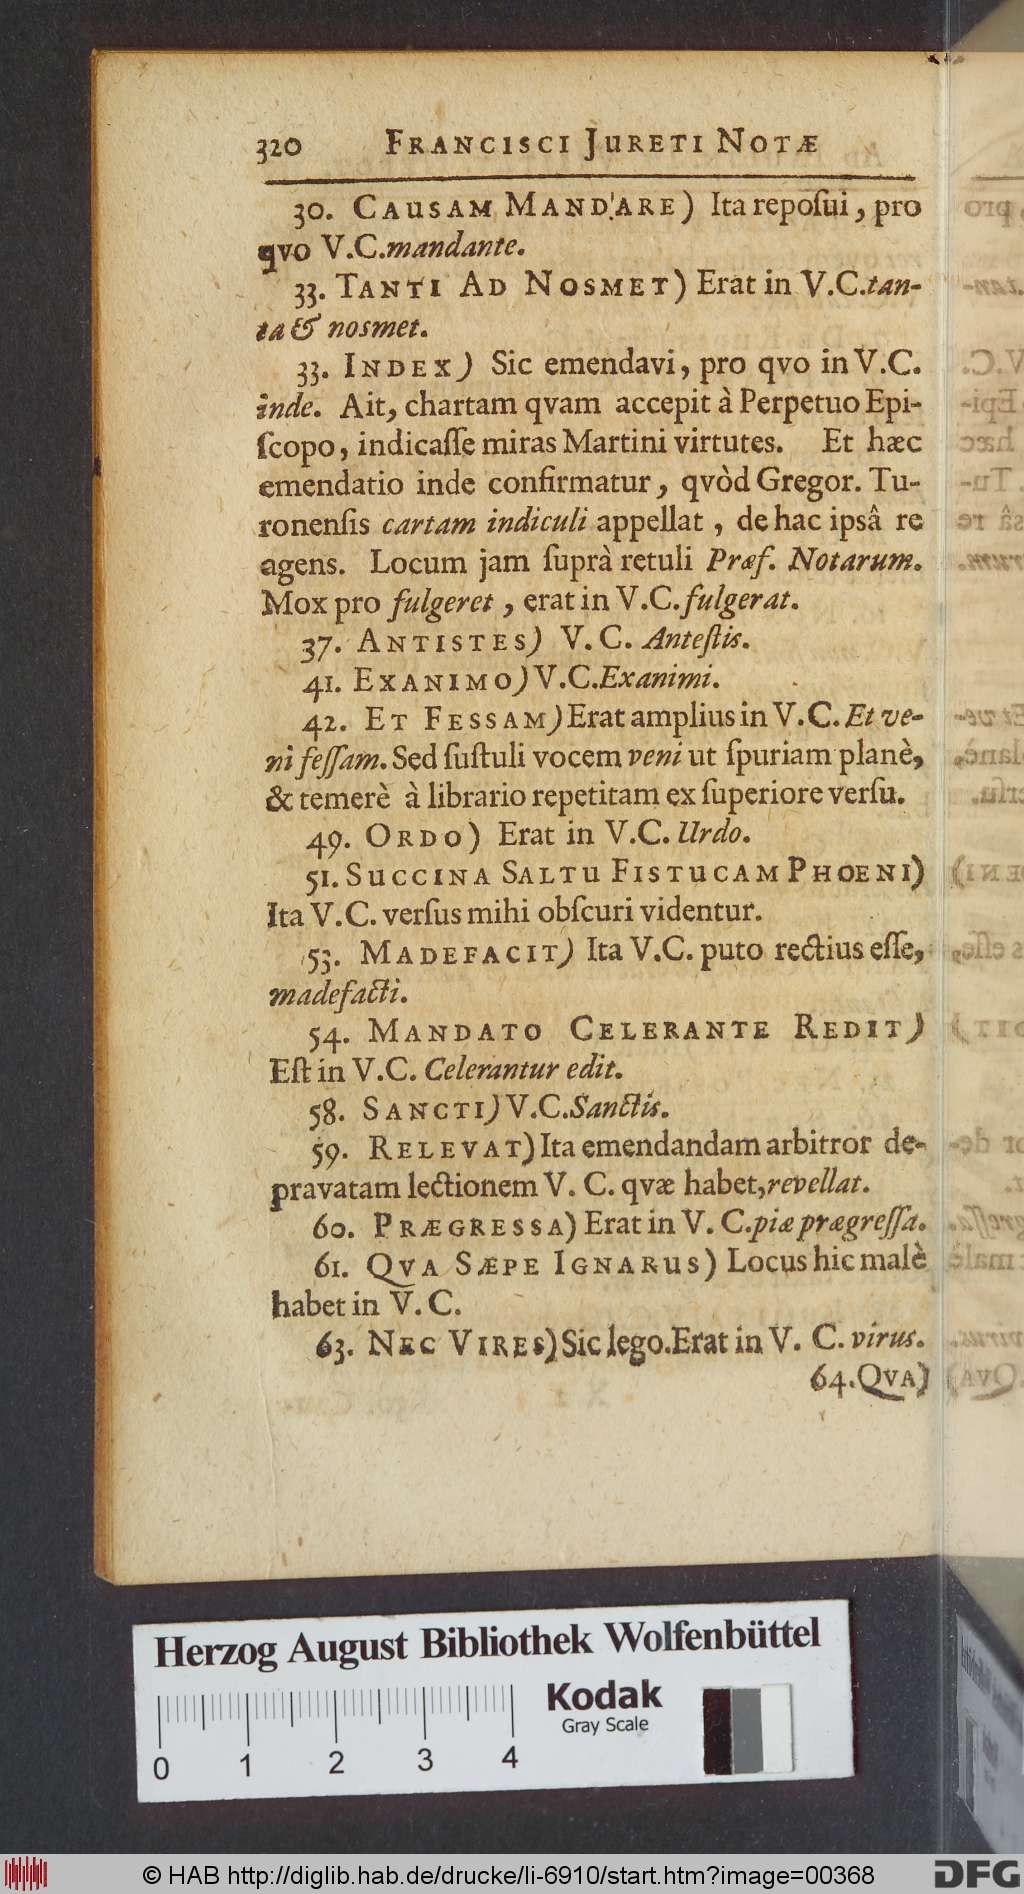 320 FRANCISCI JURETI NOTÆ
30. CAUSAM MAND'ARE) Ita reposui, pro
qvo V.C. mandante.
33. TANTI AD NOSMET) Erat in V.C. tan-
ta & nosmet.
33. INDEX) Sic emendavi, pro qvo in V.C.
inde. Ait, chartam qvam accepit à Perpetuo Epi-
ſcopo, indicaſſe miras Martini virtutes. Et hæc
emendatio inde confirmatur, qvòd Gregor. Tu-
ronenſis cartam indiculi appellat, de hac ipsâ re
agens. Locum jam ſuprà retuli Præf. Notarum.
Mox pro fulgeret, erat in V.C. fulgerat.
37. ANTISTES) V.C. Anteſtis.
41. EXANIMO) V.C. Exanimi.
42. ET FESSAM) Erat amplius in V.C. Et ve-
ni feſſam. Sed ſuſtuli vocem veni ut ſpuriam planè,
& temerè à librario repetitam ex ſuperiore verſu.
49. ORDO) Erat in V.C. Urdo.
51. SUCCINA SALTU FISTUCAM PHOENI)
Ita V.C. verſus mihi obſcuri videntur.
53. MADEFACIT) Ita V.C. puto rectius eſſe,
madefacti.
54. MANDATO CELERANTE REDIT)
Eſt in V.C. Celerantur edit.
58. SANCTI) V.C. Sanctis.
59. RELEVAT) Ita emendandam arbitror de-
pravatam lectionem V. C. qvæ habet, revellat.
60. PRÆGRESSA) Erat in V. C. piæ prægreſſa.
61. QVA SÆPE IGNARUS) Locus hic malè
habet in V. C.
63. NEC VIRES) Sic lego. Erat in V. C. virus.
64. QVA)
Herzog August Bibliothek Wolfenbüttel
Kodak
Gray Scale
0 1 2 3 4
© HAB http://diglib.hab.de/drucke/li-6910/start.htm?image=00368
DFG